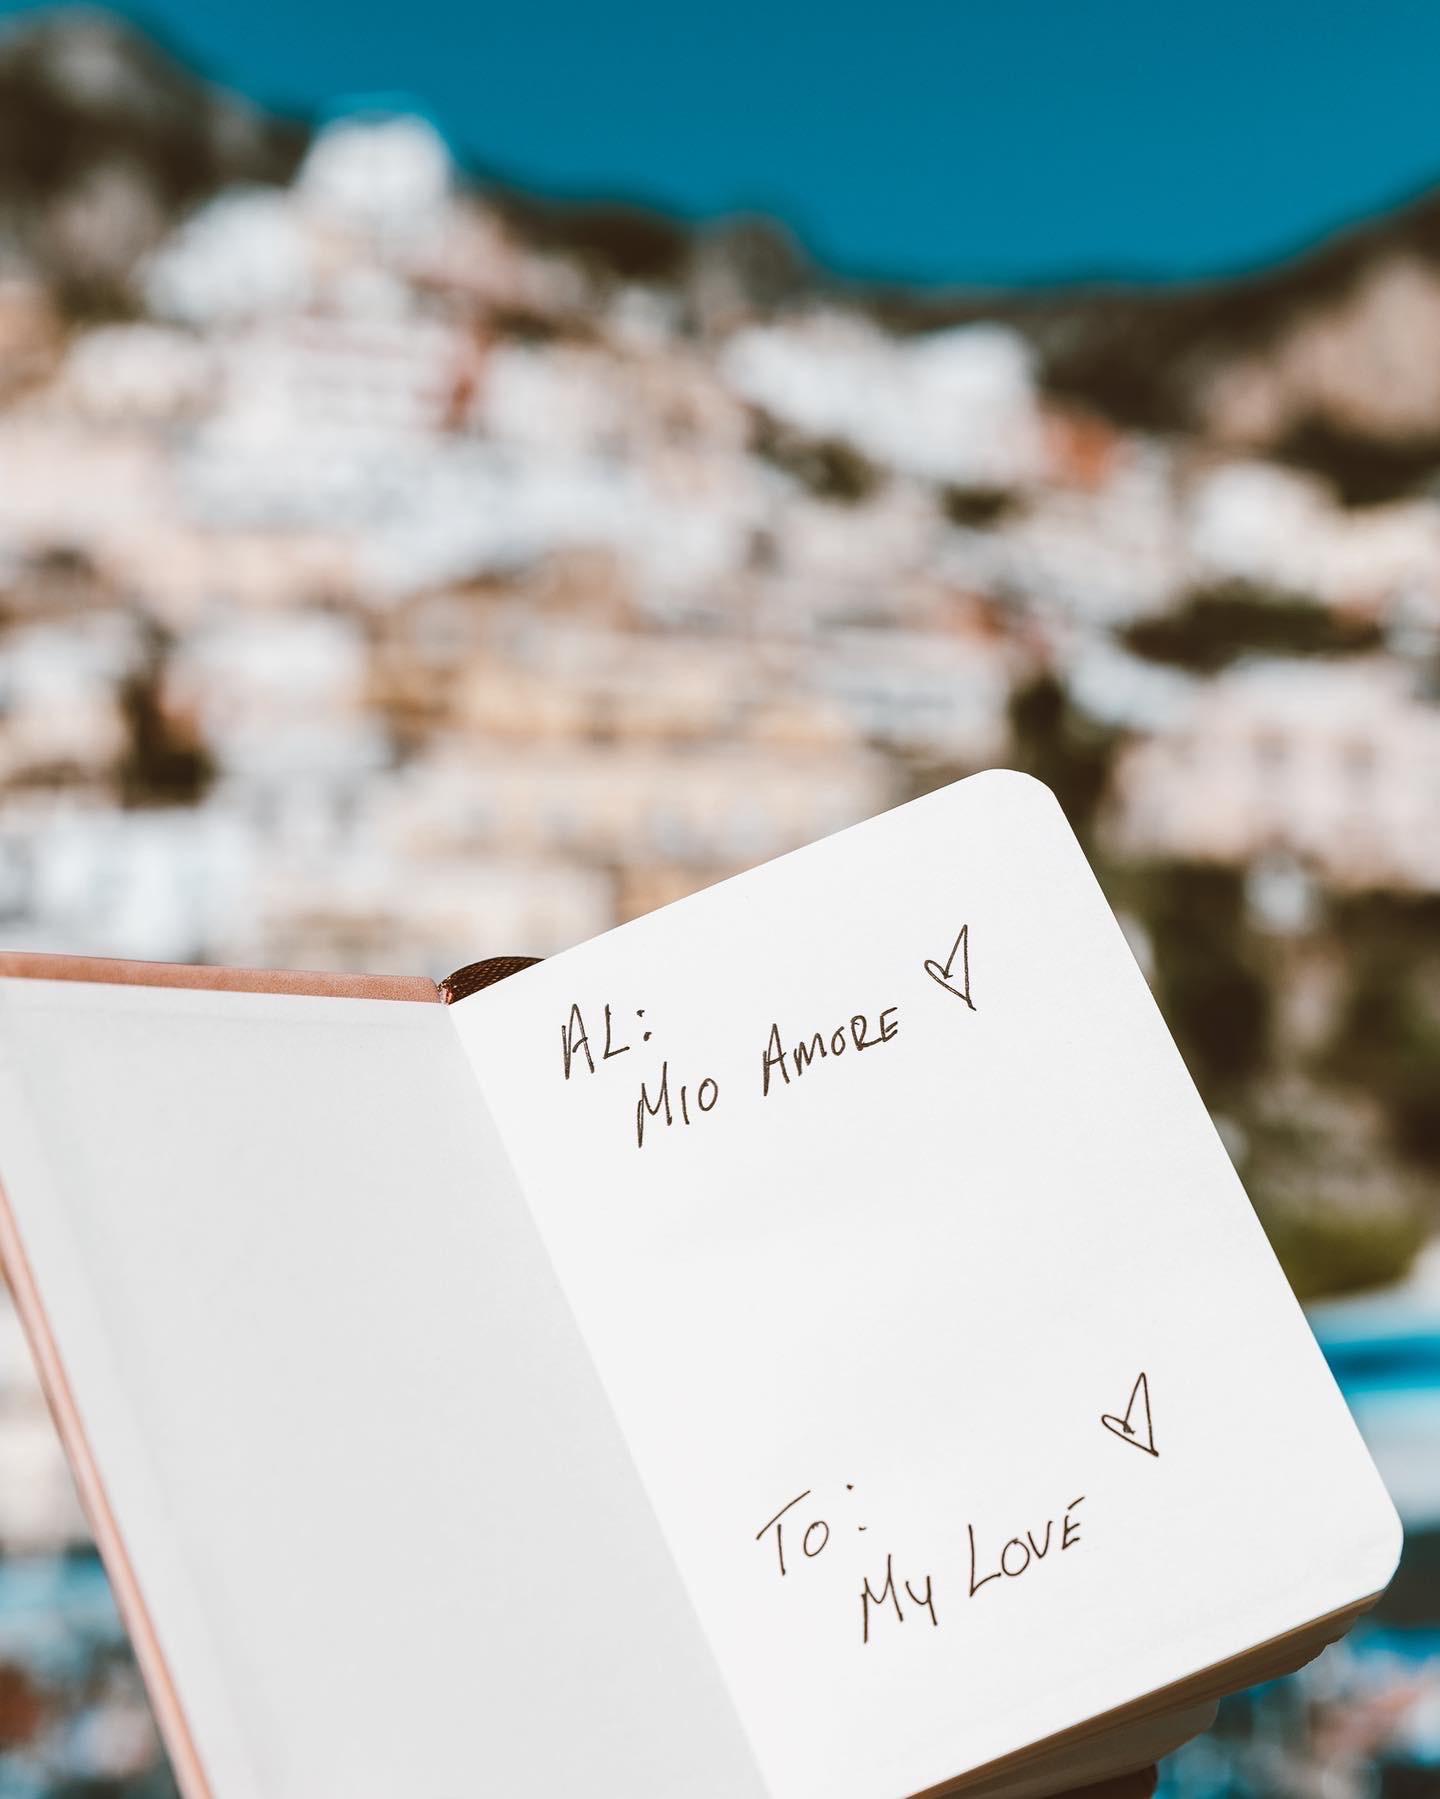 AL:
MIO AMORE
TO:
MY LOVE